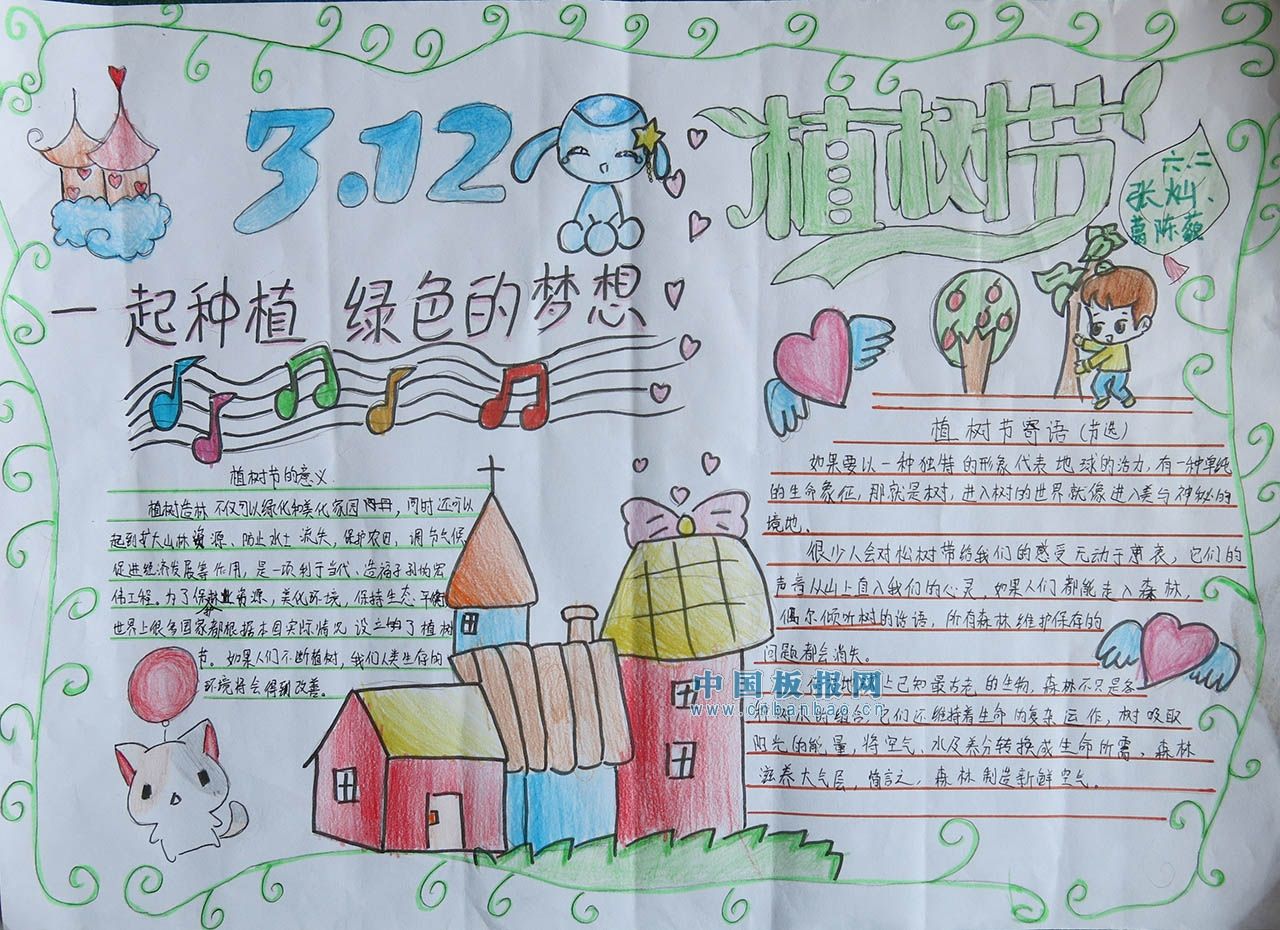 3.12
植树节
六二
张灿、
葛陈薇
一起种植 绿色的梦想
植树节的意义
植树造林不仅可以绿化和美化家园,同时还可以
起到扩大山林资源、防止水土流失,保护农田,调节气候,
促进经济发展等作用,是一项利于当代、造福子孙的宏
伟工程。为了保护林业资源,美化环境,保持生态平衡
世界上很多国家都根据本国实际情况设立了植树
节。如果人们不断植树,我们人类生存的
环境将会得到改善。
植树节寄语(节选)
如果要以一种独特的形象代表地球的活力,有一种单纯
的生命象征,那就是树,进入树的世界就像进入美与神秘的
境地、
很少人会对松树带给我们的感受无动于衷,它们的
声音从山上直入我们的心灵,如果人们都能走入森林,
偶尔倾听树的话语,所有森林维护保存的
问题都会消失。
上已知最古老的生物,森林不只是各
组合,它们还维持着生命的复杂运作,树吸取
阳光的能量,将空气、水及养分转换成生命所需、森林
滋养大气层,简言之,森林制造新鲜空气。
中国板报网
www.cnbanbao.cn